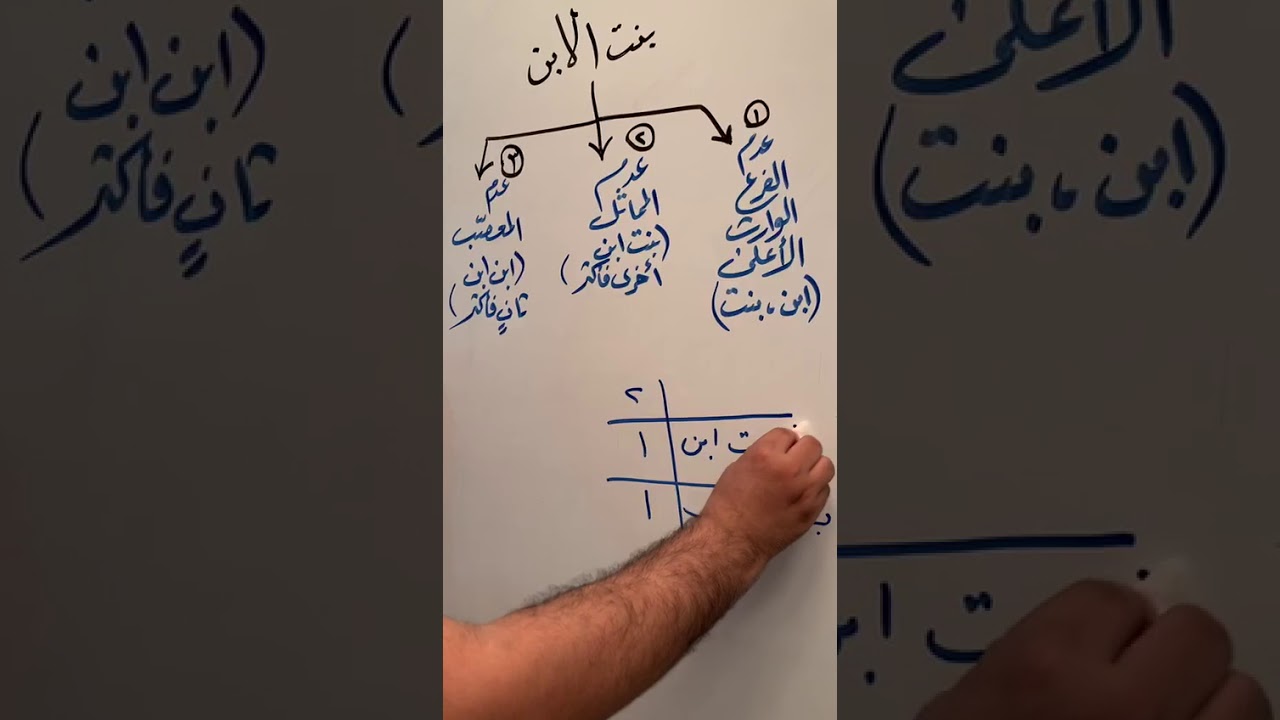 بنت الابن
١
عدم
الفرع
الوارث
الأعلى
(ابن، بنت)
٢
عدم
المماثل
(بنت ابن
أخرى فأكثر)
٣
عدم
المعصّب
(ابن ابن
ثانٍ فأكثر)
٢
ت ابن ١
١